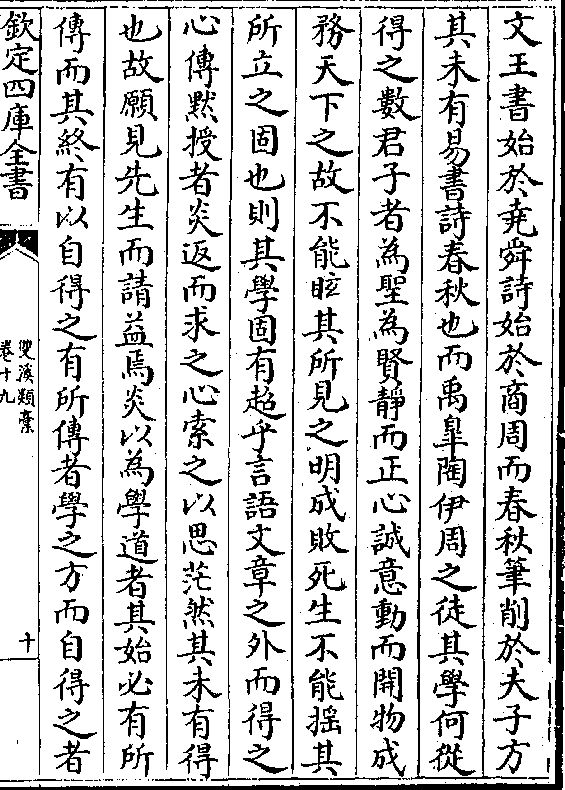 文王書始於堯舜詩始於商周而春秋筆削於夫子方
其未有易書詩春秋也而禹皐陶伊周之徒其學何從
得之數君子者為聖為賢靜而正心誠意動而開物成
務天下之故不能眩其所見之明成敗死生不能揺其
所立之固也則其學固有超乎言語文章之外而得之
心傳黙授者炎返而求之心索之以思茫然其未有得
也故願見先生而請益焉炎以為學道者其始必有所
傳而其終有以自得之有所傳者學之方而自得之者
欽定四庫全書
雙溪類槀
卷十九
十